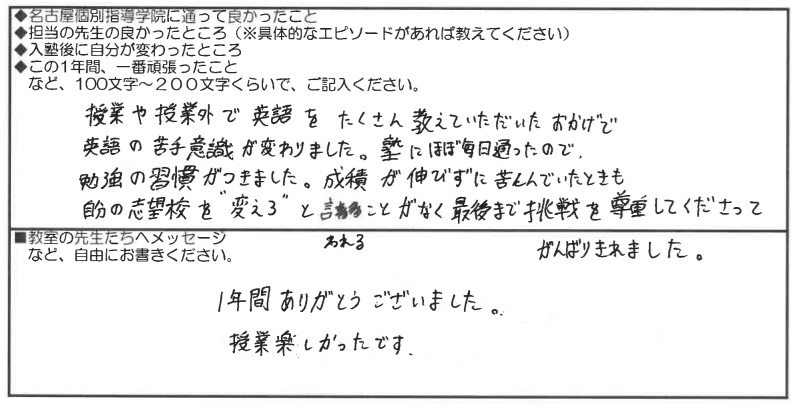 ◆名古屋個別指導学院に通って良かったこと
◆担当の先生の良かったところ（※具体的なエピソードがあれば教えてください）
◆入塾後に自分が変わったところ
◆この1年間、一番頑張ったこと
など、100文字～200文字くらいで、ご記入ください。
授業や授業外で英語をたくさん教えていただいたおかげで
英語の苦手意識が変わりました。塾にほぼ毎日通ったので、
勉強の習慣がつきました。成績が伸びずに苦しんでいたときも
自分の志望校を"変えろ"と言われることがなく最後まで挑戦を尊重してくださって
がんばりきれました。
■教室の先生たちへメッセージ
など、自由にお書きください。
1年間ありがとうございました。
授業楽しかったです。